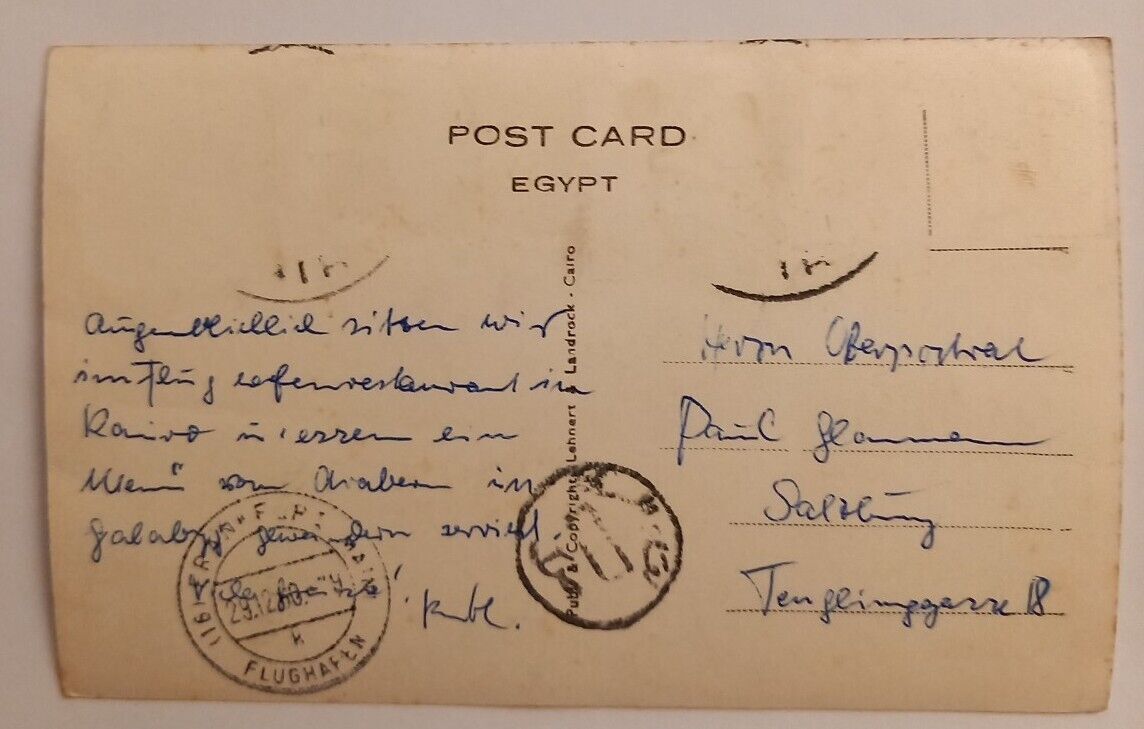 POST CARD
EGYPT
Augenblicklich sitzen wir
im Flughafenrestaurant in
Kairo u. essen ein
Menü von Arabern in
gewändern serviert.
Viele Grüße!
Publ. & Copyright: Lehnert & Landrock - Cairo
Herrn Oberpostrat
Paul
Salzburg
18
(16) FRANKFURT MAIN
29.12.60
k
FLUGHAFEN